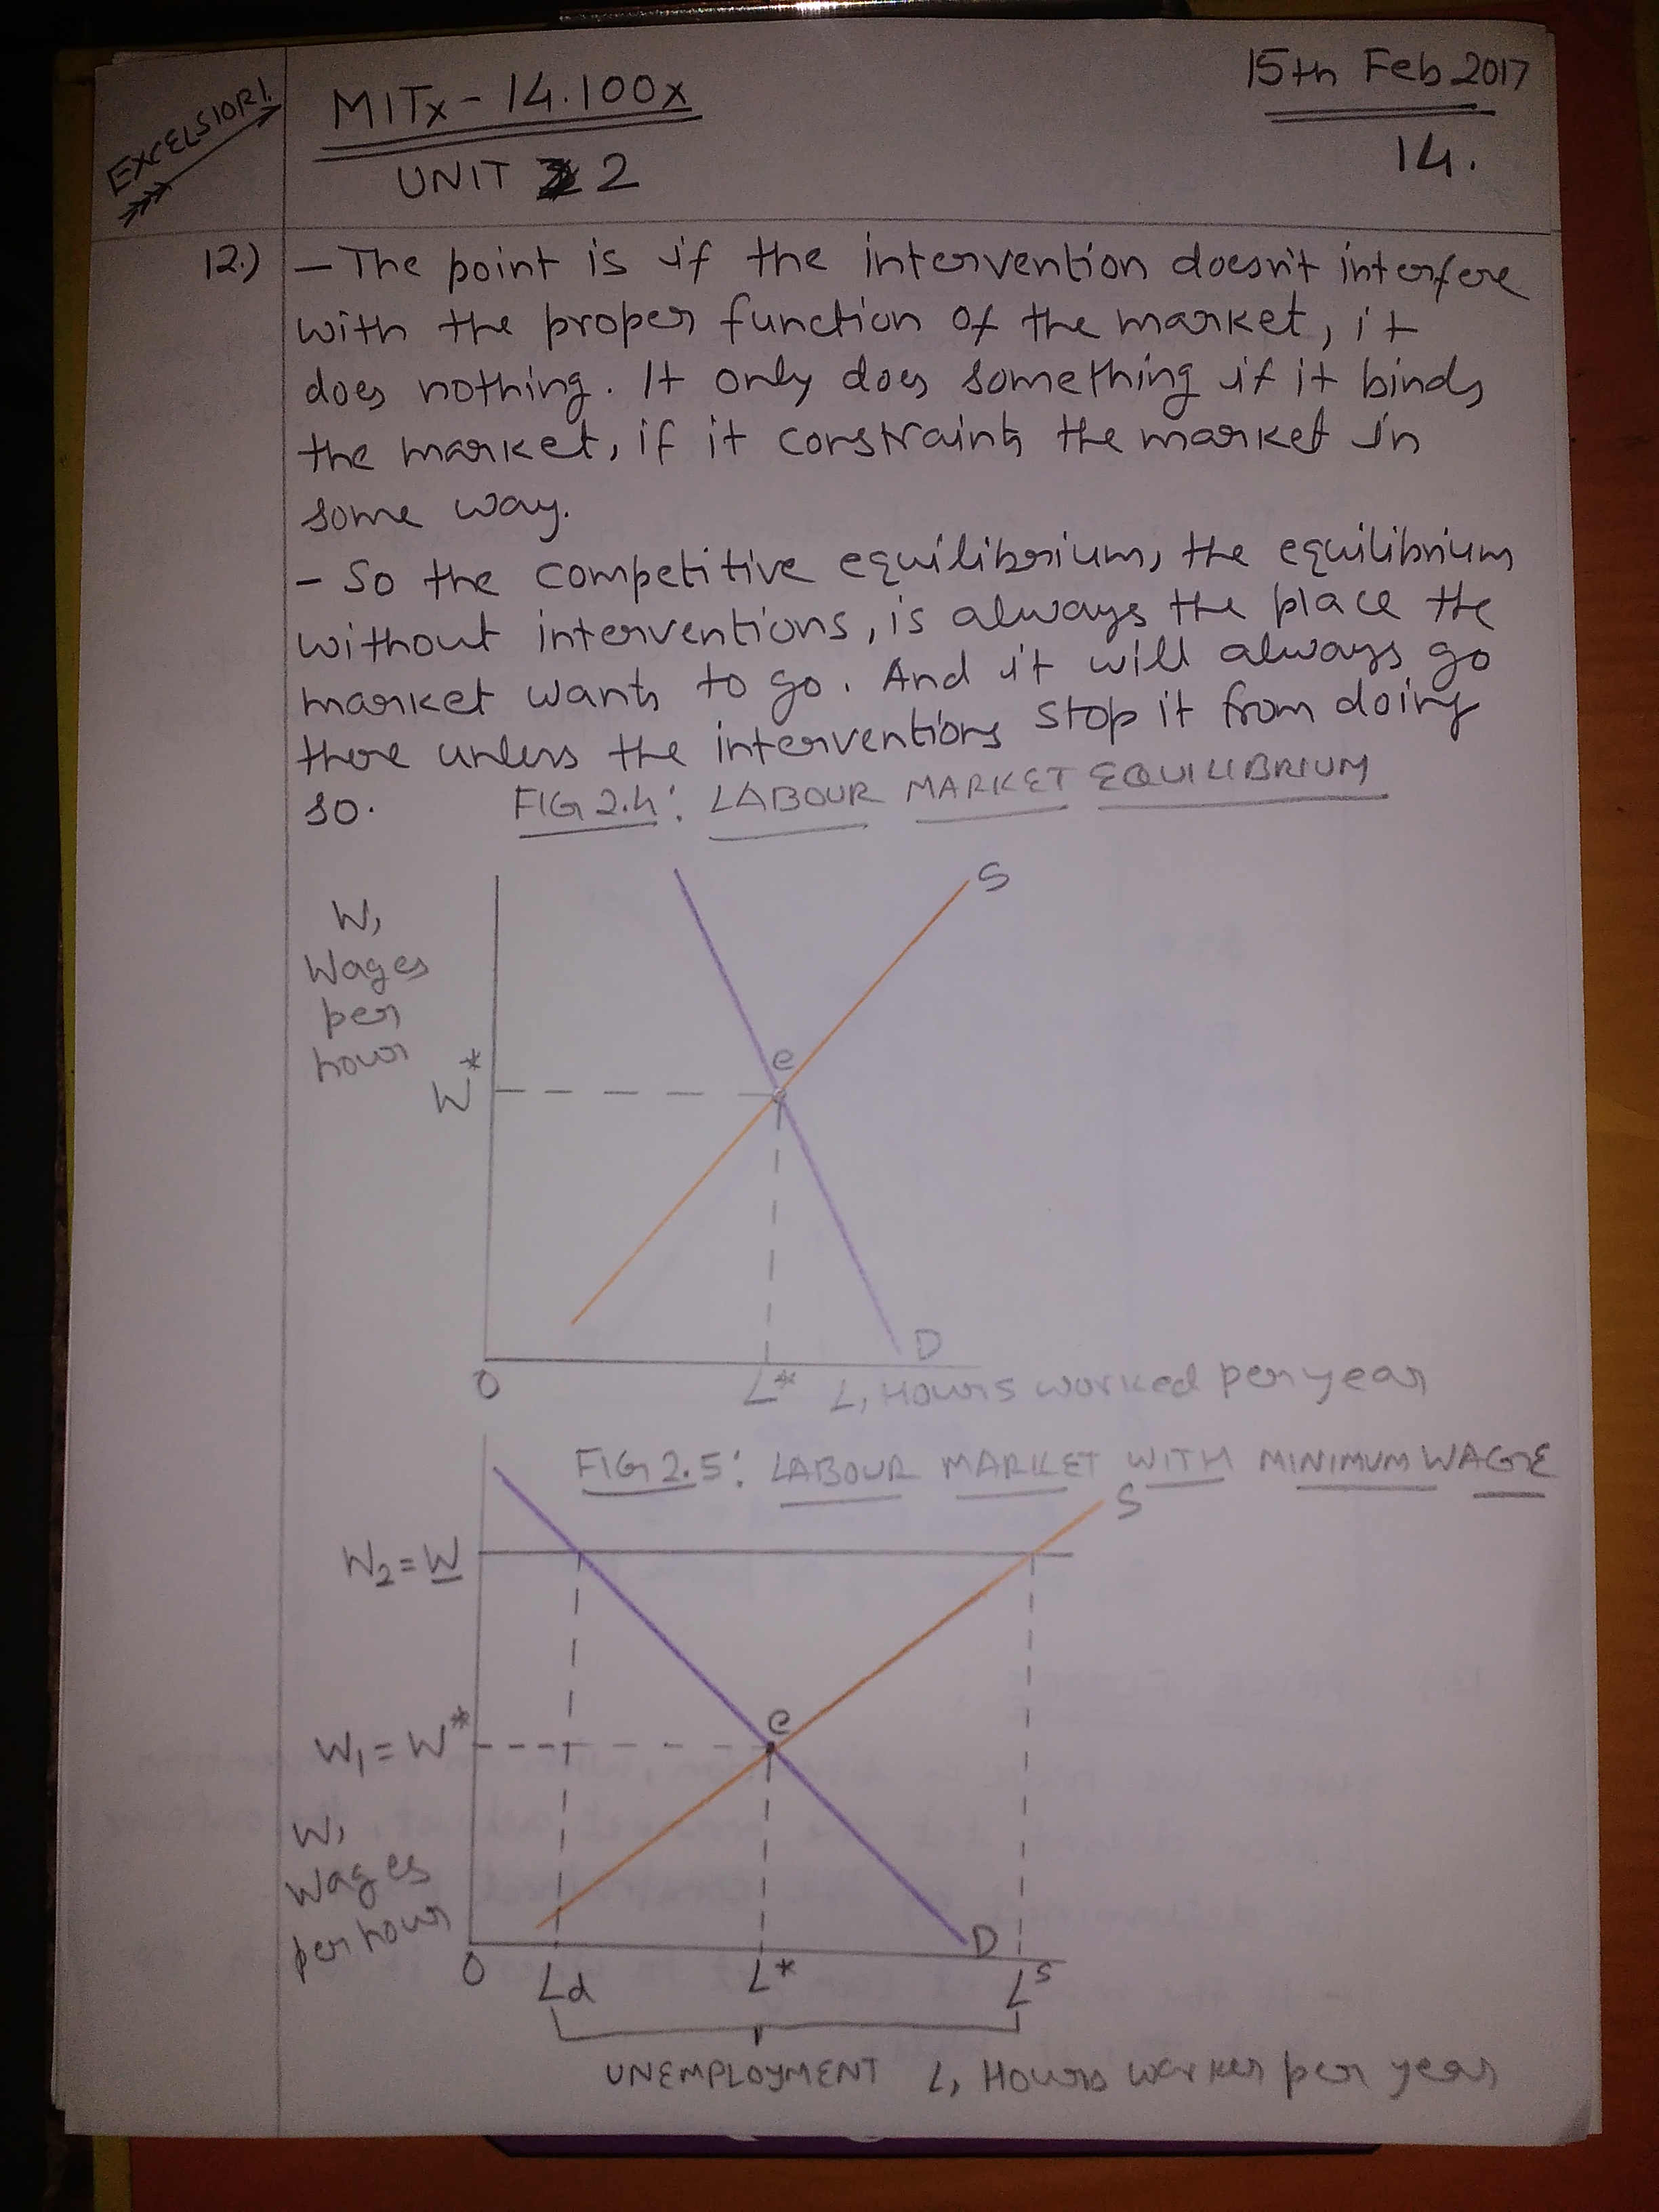 EXCELSIOR!
MITx - 14.100x
UNIT 2
15th Feb 2017
14.
12.) - The point is if the intervention doesn't interfere
with the proper function of the market, it
does nothing. It only does something if it binds
the market, if it constraints the market in
some way.
- So the competitive equilibrium, the equilibrium
without interventions, is always the place the
market wants to go. And it will always go
there unless the interventions stop it from doing
so.
FIG 2.4: LABOUR MARKET EQUILIBRIUM
W,
Wages
per
hour
S
e
W*
D
O
L*
L, Hours worked per year
FIG 2.5: LABOUR MARKET WITH MINIMUM WAGE
S
W2 = W
e
W1 = W*
W,
Wages
per hour
D
O
Ld
L*
Ls
UNEMPLOYMENT
L, Hours worker per year